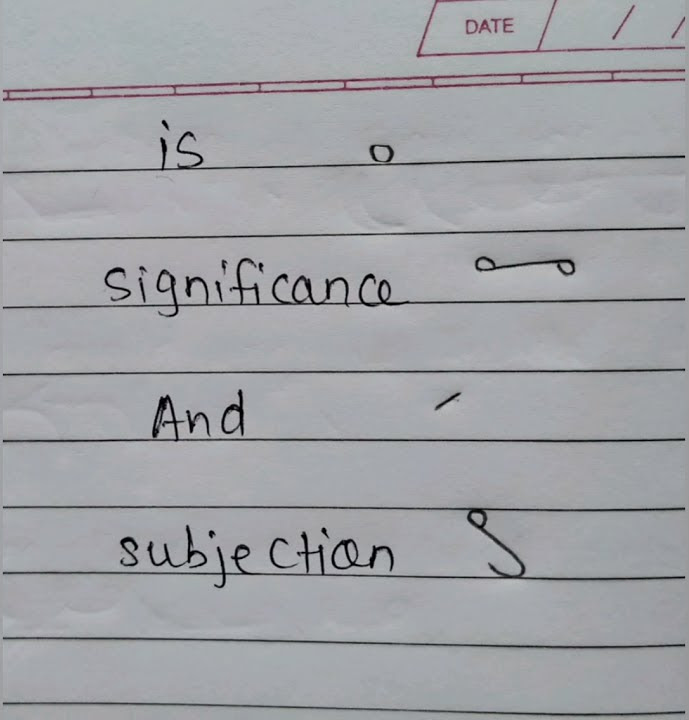 DATE / /
is
significance
And
subjection